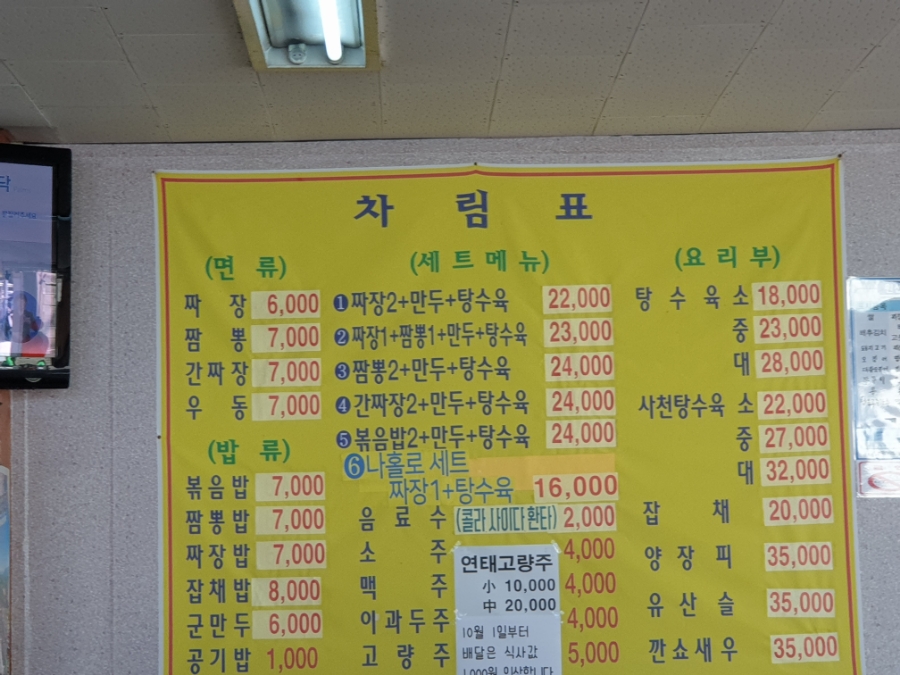 차림표
(면류)
짜장 6,000
짬뽕 7,000
간짜장 7,000
우동 7,000
(밥류)
볶음밥 7,000
짬뽕밥 7,000
짜장밥 7,000
잡채밥 8,000
군만두 6,000
공기밥 1,000
(세트메뉴)
❶ 짜장2+만두+탕수육 22,000
❷ 짜장1+짬뽕1+만두+탕수육 23,000
❸ 짬뽕2+만두+탕수육 24,000
❹ 간짜장2+만두+탕수육 24,000
❺ 볶음밥2+만두+탕수육 24,000
❻ 나홀로 세트
짜장1+탕수육 16,000
음료수 (콜라 사이다 환타) 2,000
소주 4,000
맥주 4,000
이과두주 4,000
고량주 5,000
연태고량주
小 10,000
中 20,000
10월 1일부터
배달은 식사값
1,000원 인상합니다
(요리부)
탕수육 소 18,000
중 23,000
대 28,000
사천탕수육 소 22,000
중 27,000
대 32,000
잡채 20,000
양장피 35,000
유산슬 35,000
깐쇼새우 35,000